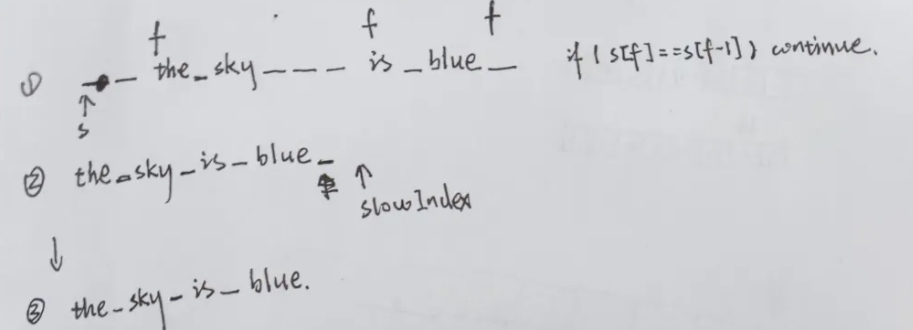 f f f
① _ _ the_sky _ _ _ is _ blue _ if ( s[f]==s[f-1]) continue.
↑
s
② the_sky_is_blue_
↑
slowIndex
↓
③ the_sky_is_blue.